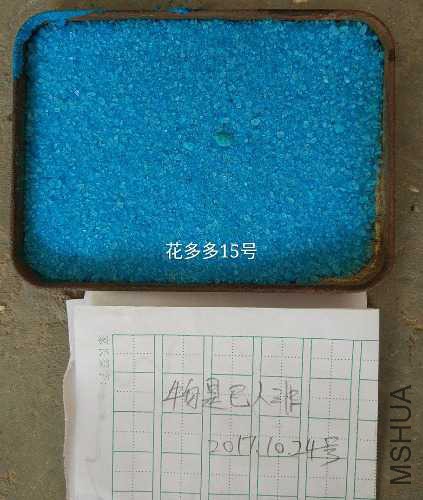 花多多15号
物是已人非
2017.10.24号
MSHUA